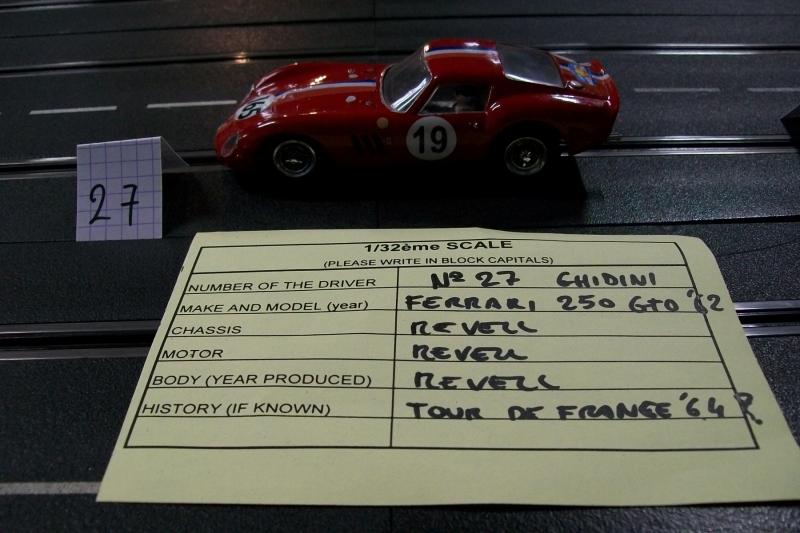 65
19
27
1/32ème SCALE
(PLEASE WRITE IN BLOCK CAPITALS)
NUMBER OF THE DRIVER Nº 27 GHIDINI
MAKE AND MODEL (year) FERRARI 250 GTO '62
CHASSIS REVELL
MOTOR REVELL
BODY (YEAR PRODUCED) REVELL
HISTORY (IF KNOWN) TOUR DE FRANCE '64